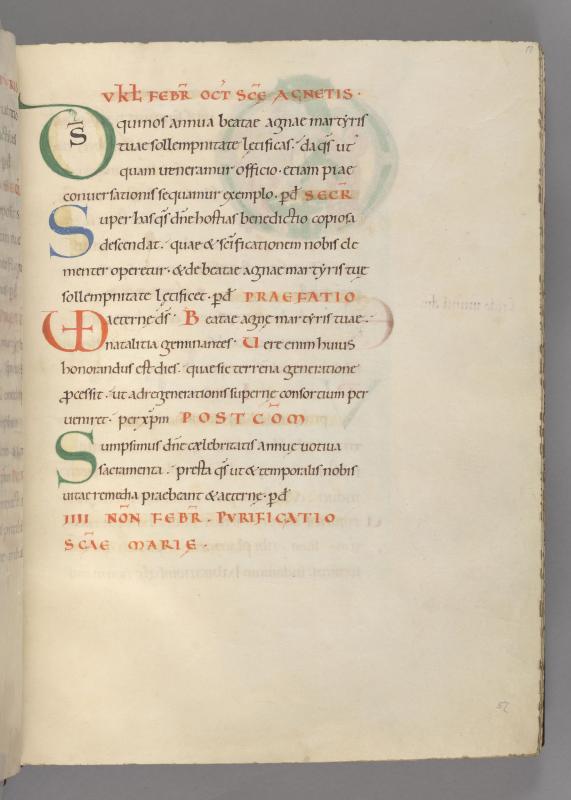 V KŁ FEBR̄ OCT̄ SC̄E AGNETIS ·
D̄S qui nos annua beatae agnae martyris
tuae sollempnitate lętificas · da q̄s ut
quam ueneramur officio · etiam piae
conuersationis sequamur exemplo · p̄d SECR̄
Super has q̄s dn̄e hostias benedictio copiosa
descendat · quae & sc̄ificationem nobis cle
menter operetur · & de beatae agnae martyris tuę
sollempnitate lętificet · p̄d PRAEFATIO
VD aeterne ds̄ · Beatae agnę martyris tuae ·
natalitia geminantes · Uere enim huius
honorandus est dies · quae sic terrena generatione
ꝓcessit · ut ad regenerationis supernę consortium per
ueniret · per xp̄m POSTCŌM
Sumpsimus dn̄e caelebritatis annuę uotiua
sacramenta · presta q̄s ut & temporalis nobis
uitae remedia praebeant & aeternę · p̄d
IIII NON̄ FEBR̄ · PVRIFICATIO
SC̄AE MARIĘ ·
57